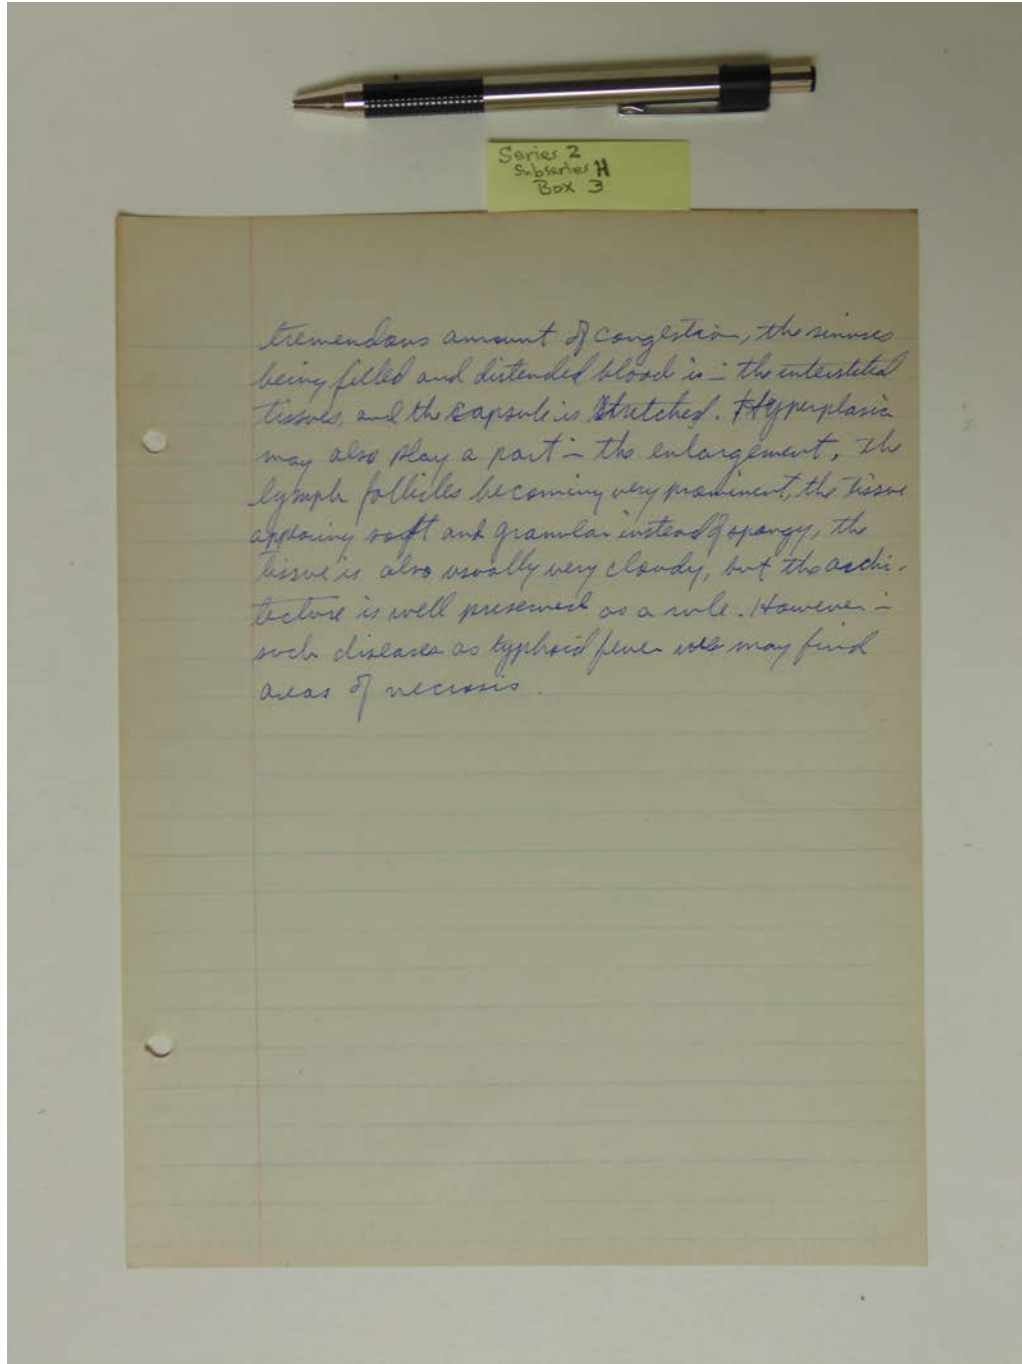 Series 2
Subseries H
Box 3
tremendous amount of congestion, the sinuses
being filled and distended blood is – the interstitial
tissues, and the capsule is stretched. Hyperplasia
may also play a part – the enlargement. The
lymph follicles becoming very prominent, the tissue
appearing soft and granular instead of spongy, the
tissue is also usually very cloudy, but the archi-
tecture is well preserved as a rule. However –
such diseases as typhoid fever may find
areas of necrosis.